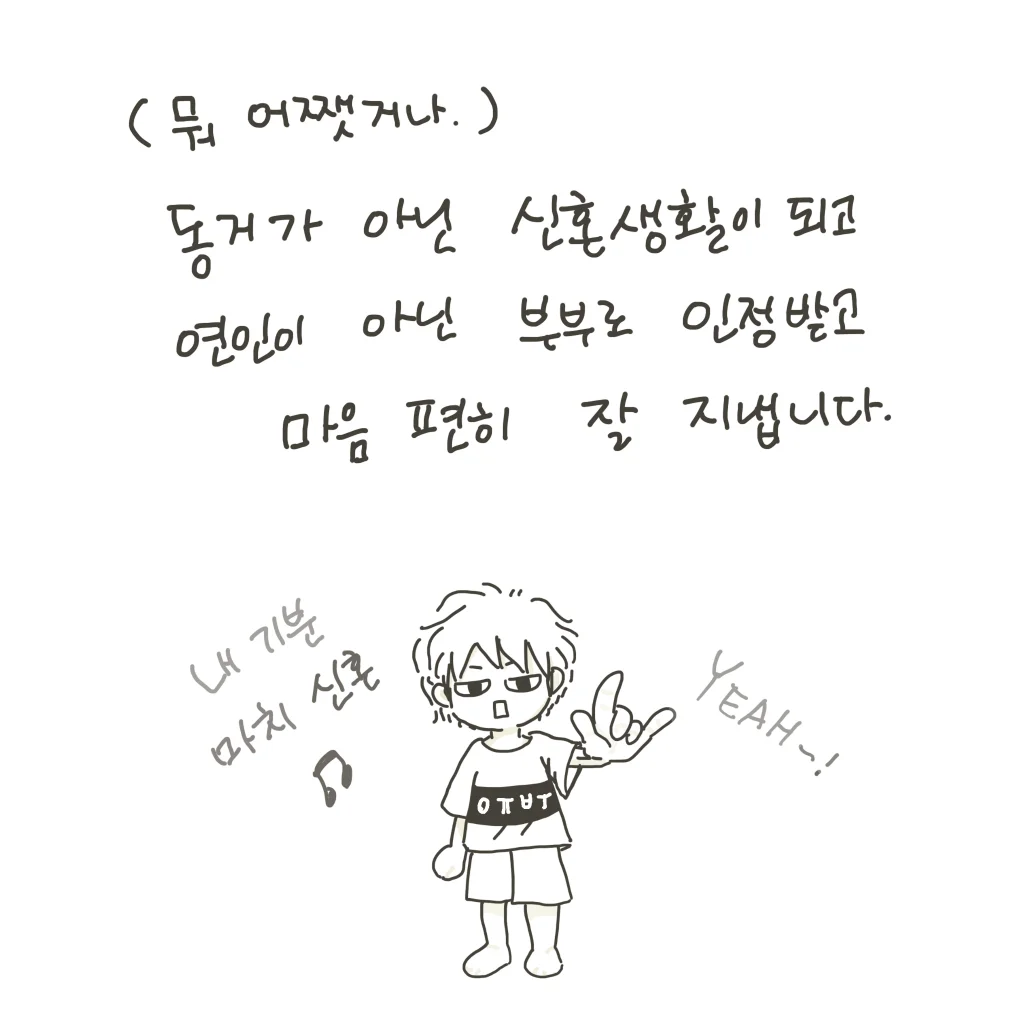 (뭐 어쨋거나.)
동거가 아닌 신혼생활이 되고
연인이 아닌 부부로 인정받고
마음 편히 잘 지냅니다.
내 기분
마치 신혼
YEAH~!
유부ㅅ